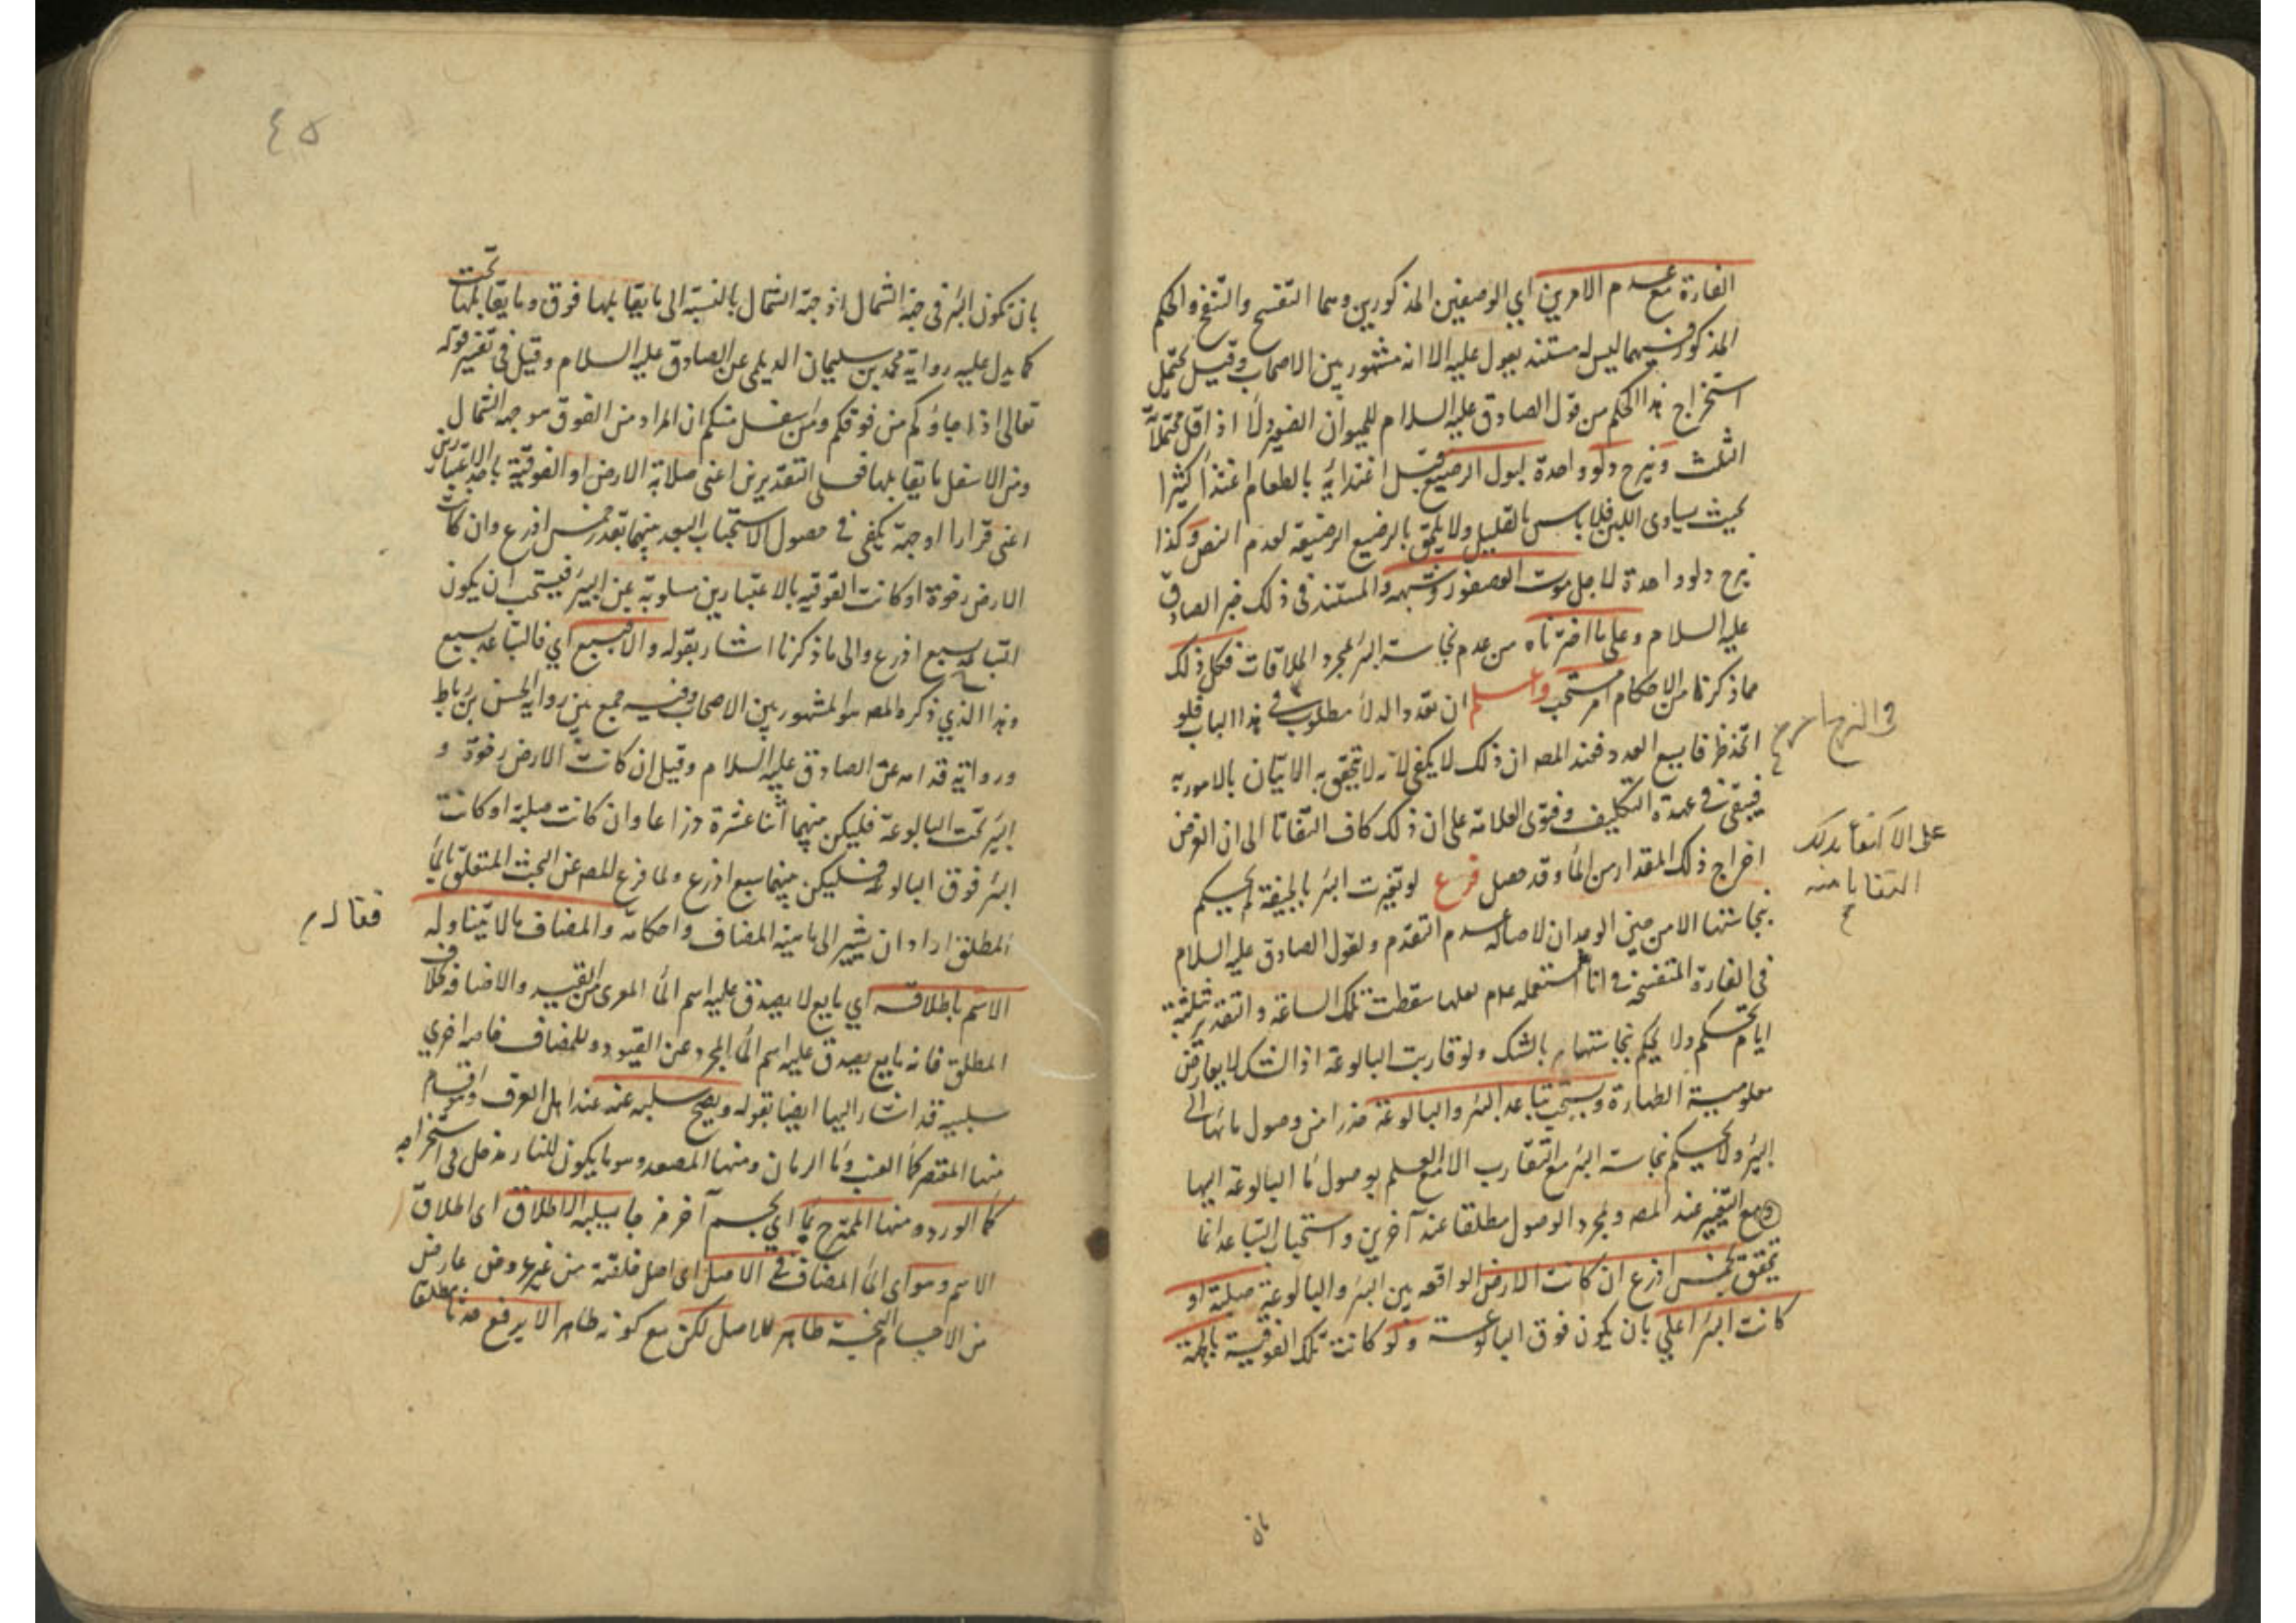 الفارة مع عدم الامرين اي الوصفين المذكورين وهما التفسخ والتنفخ والحكم
المذكور فيهما ليس له مستند يعول عليه الا انه مشهور بين الاصحاب وقيل يحتمل
استخراج هذا الحكم من قول الصادق عليه السلام للحيوان الصغير دلاء اذ اقل محتملاته
الثلث ونزح دلو واحدة لبول الرضيع قبل اغتذايه بالطعام اغتذاء كثيرا
بحيث يساوى اللبن فلا باس بالقليل ولا يلحق بالرضيع الرضيعة لعدم النص وكذا
نزح دلو واحدة لاجل موت العصفور وشبهه والمستند في ذلك خبر الصادق
عليه السلام وعلى ما اخترناه من عدم نجاسة البئر بمجرد الملاقات فكل ذلك
مما ذكرنا من الاحكام امر مستحب واعلم ان تعدد الدلاء مطلوب في هذا الباب فلو
اتخذ ظرفا يسع العدد فعند المصه ان ذلك لا يكفي لانه لا يتحقق به الاتيان بالامور به
فيبقى في عهدة التكليف وفتوى العلامة على ان ذلك كاف التفاتا الى ان الغرض
اخراج ذلك المقدار من الماء وقد حصل فرع لو تغيرت البئر بالجيفة لم يحكم
بنجاستها الا من حين الوجدان لاصالة عدم التقدم ولقول الصادق عليه السلام
في الفارة المتفسخة في اناء استعمله عدم لعلها سقطت تلك الساعة والتقدير بثلثة
ايام تحكم ولا يحكم بنجاستها بالشك ولو قاربت البالوعة اذ الشك لا يعارض
معلومية الطهارة ويستحب تباعد البئر والبالوعة حذرا من وصول مائها الى
البئر ولا يحكم نجاسة البئر مع التقارب الا مع العلم بوصول ماء البالوعة اليها
ومع التغير عند المصه وبمجرد الوصول مطلقا عند آخرين واستحباب التباعد انما
يتحقق بخمس اذرع ان كانت الارض الواقعه بين البئر والبالوعة صلبة او
كانت البئر اعلى بان يكون فوق البالوعة ولو كانت تلك الفوقية بالجهة
على الاكتفا بذلك
التفاتا منه
بان
٤٥
بان تكون البئر في جهة الشمال اذ جهة الشمال بالنسبة الى ما يقابلها فوق وما يقابلها تحت
كما يدل عليه رواية محمد بن سليمان الديلمي عن الصادق عليه السلام وقيل في تفسير قوله
تعالى اذ جاؤكم من فوقكم ومن اسفل منكم ان المراد من الفوق هو جهة الشمال
ومن الاسفل ما يقابلها فعلى التقديرين اعنى صلابة الارض او الفوقية باحد الاعتبارين
اعنى قرارا او جهة يكفى في حصول الاستحباب البعد بينهما بقدر خمس اذرع وان كانت
الارض رخوة او كانت الفوقيه بالاعتبارين مسلوبة عن البير فيستحب ان يكون
التباعد بسبع اذرع والى ما ذكرنا اشار بقوله والا فبسبع اي فالتباعد بسبع
وهذا الذي ذكره المصه هو المشهور بين الاصحاب وفيه جمع بين رواية الحسن بن رباط
ورواية قدامه عن الصادق عليه السلام وقيل ان كانت الارض رخوة و
البئر تحت البالوعة فليكن بينهما اثنا عشرة ذراعا وان كانت صلبة او كانت
البئر فوق البالوعة فليكن بينهما سبع اذرع ولما فرغ المصه عن البحث المتعلق بالماء
المطلق اراد ان يشير الى ماهية المضاف واحكامه والمضاف ما لا يتناوله
فقال
الاسم باطلاقه اي مايع لا يصدق عليه اسم الماء المعرى من القيد والاضافه بخلاف
المطلق فانه مايع يصدق عليه اسم الماء المجرد عن القيود وللمضاف خاصه اخرى
سلبيه قد اشار اليها ايضا بقوله ويصح سلبه عنه عند اهل العرف واقسام
منها المعتصر كماء العنب وماء الرمان ومنها المصعد وهو ما يكون للنار مدخل في استخراجه
كماء الورد ومنها الممتزج بماء اي بجسم آخر مزجا يسلبه الاطلاق اى اطلاق
الاسم وهو اى الماء المضاف في الاصل اى اصل خلقته من غير عروض عارض
من الاجسام النجسة طاهر للاصل لكن مع كونه طاهرا لا يرفع حدثا مطلقا